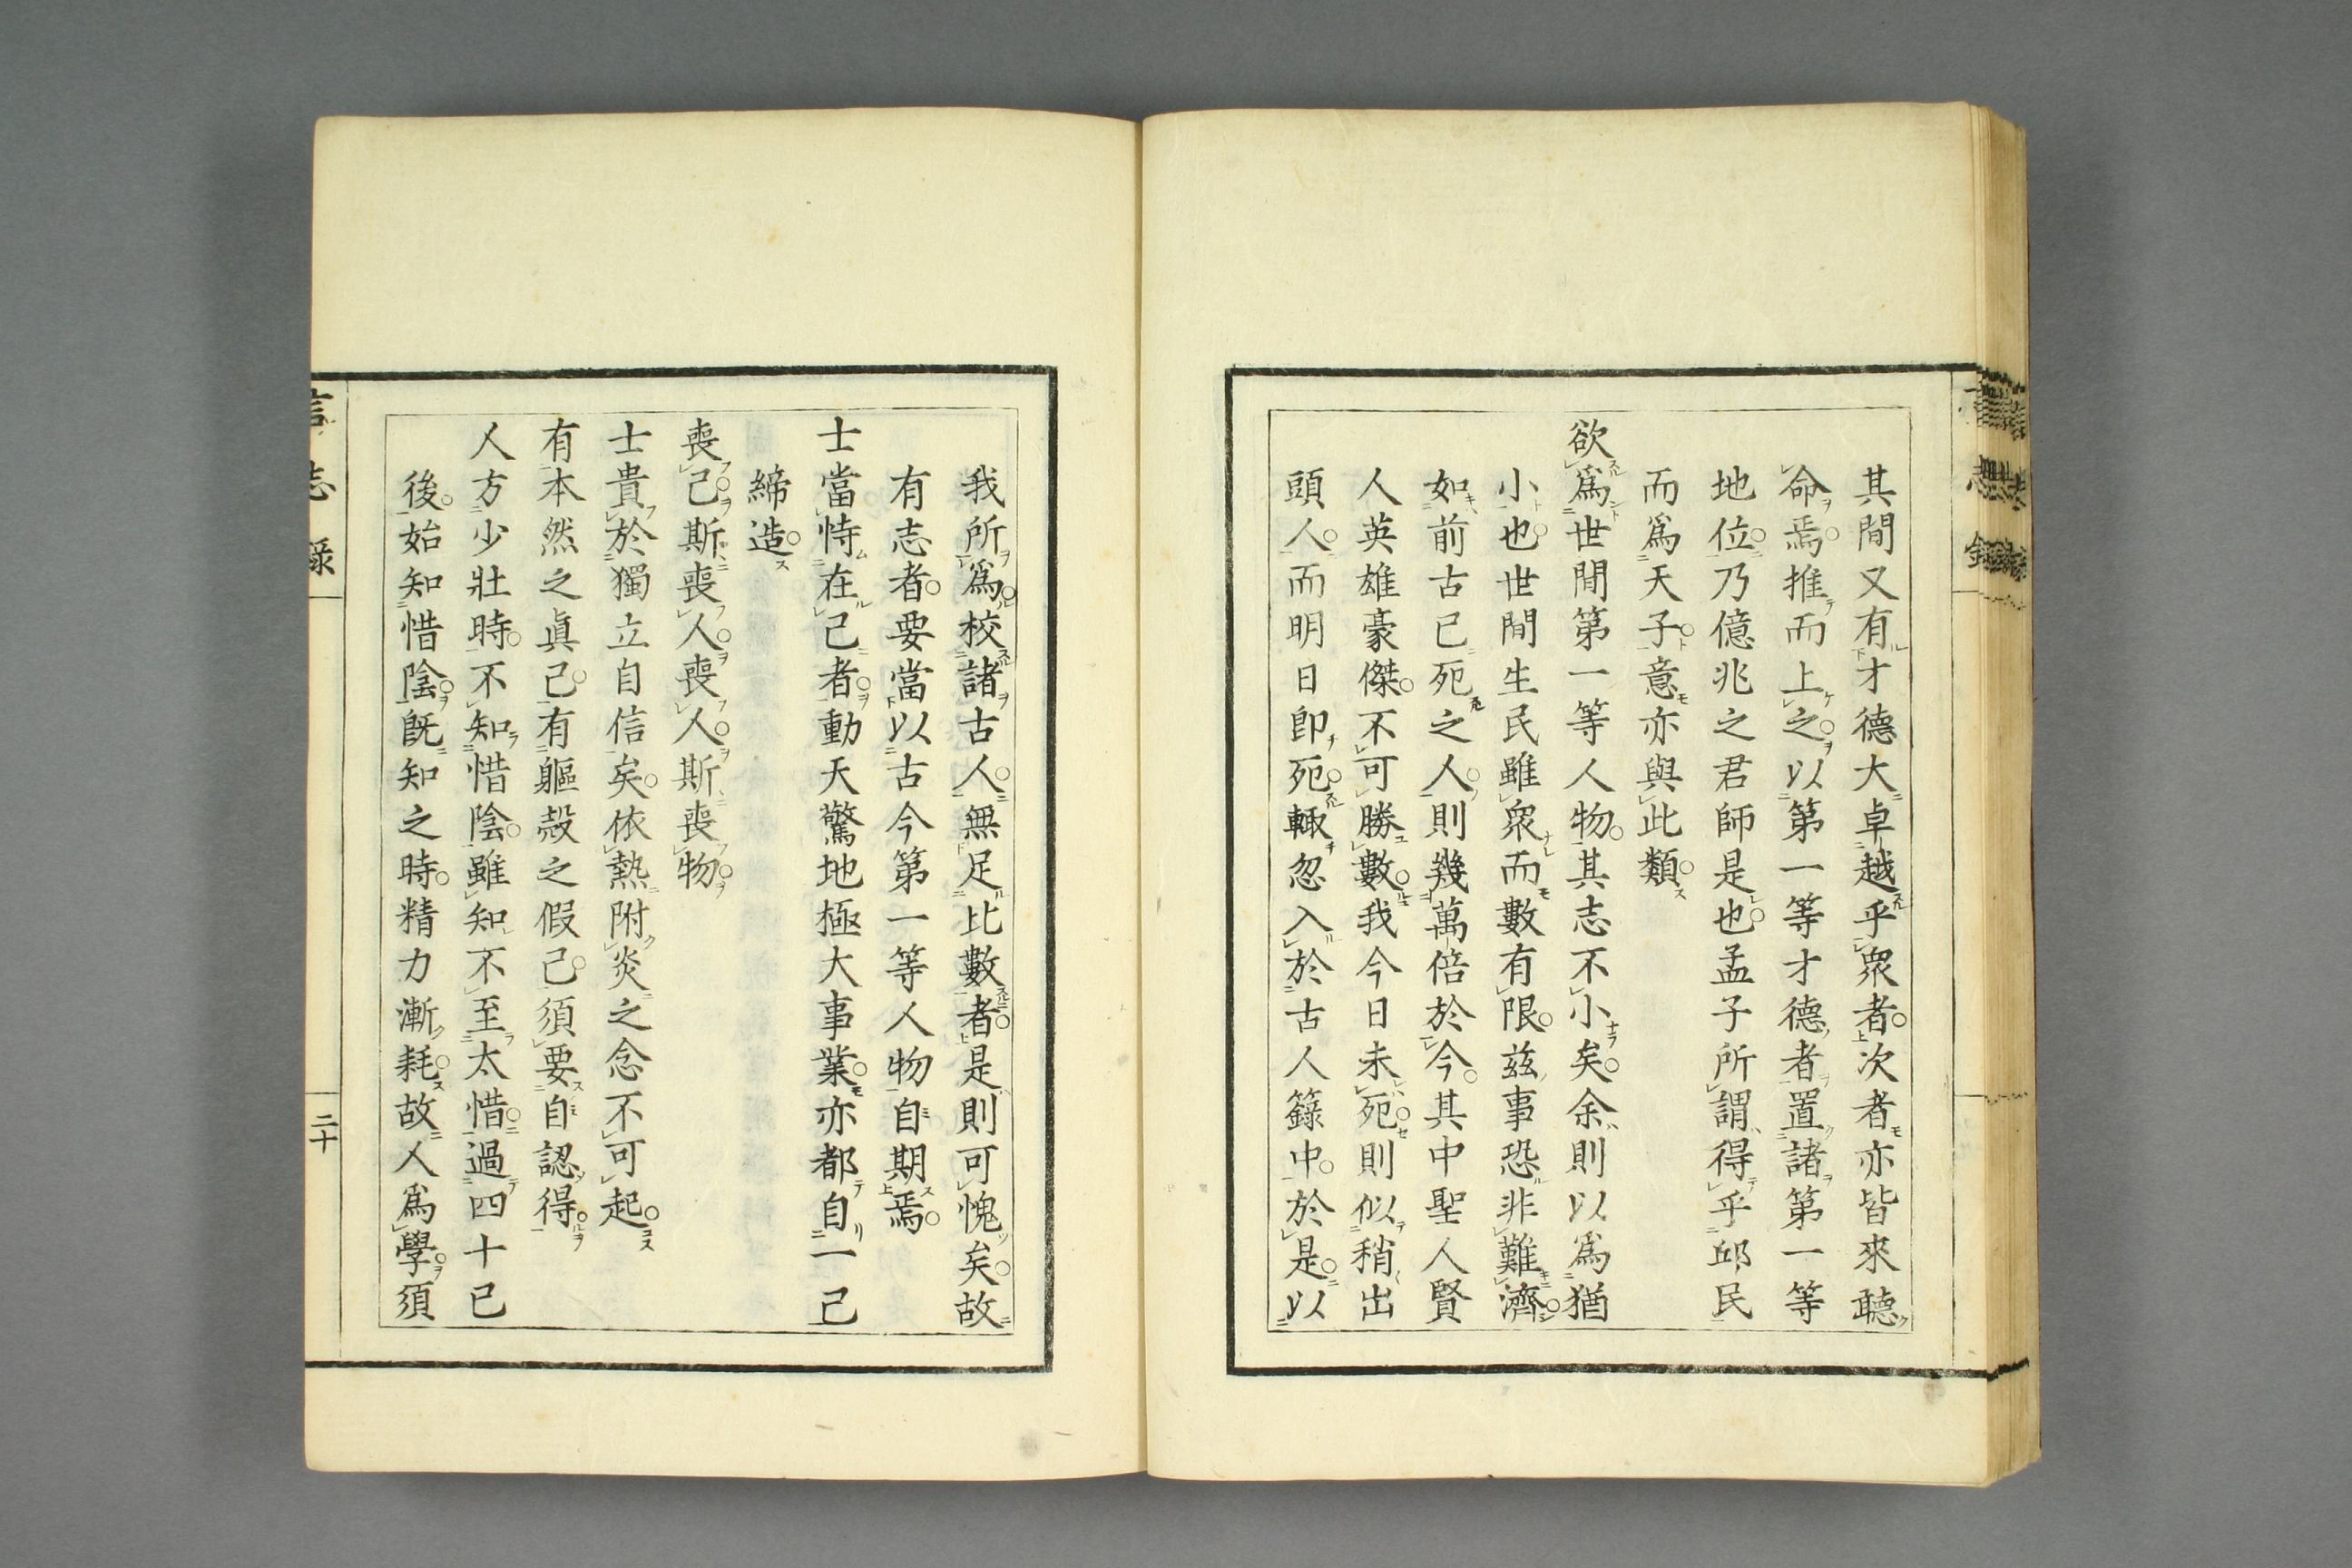 其間又有才德大卓越乎衆者次者亦皆來聽
命焉推而上之以第一等才德者置諸第一等
地位乃億兆之君師是也孟子所謂得乎邱民
而爲天子意亦與此類
欲爲世間第一等人物其志不小矣余則以爲猶
小也世間生民雖衆而數有限茲事恐非難濟
如前古已死之人則幾萬倍於今其中聖人賢
人英雄豪傑不可勝數我今日未死則似稍出
頭人而明日卽死輒忽入於古人籙中於是以
我所爲校諸古人無足比數者是則可愧矣故
有志者要當以古今第一等人物自期焉
士當恃在己者動天驚地極大事業亦都自一己
締造
喪己斯喪人喪人斯喪物
士貴於獨立自信矣依熱附炎之念不可起
有本然之眞己有軀殼之假己須要自認得
人方少壯時不知惜陰雖知不至太惜過四十已
後始知惜陰旣知之時精力漸耗故人爲學須
言志錄
二十